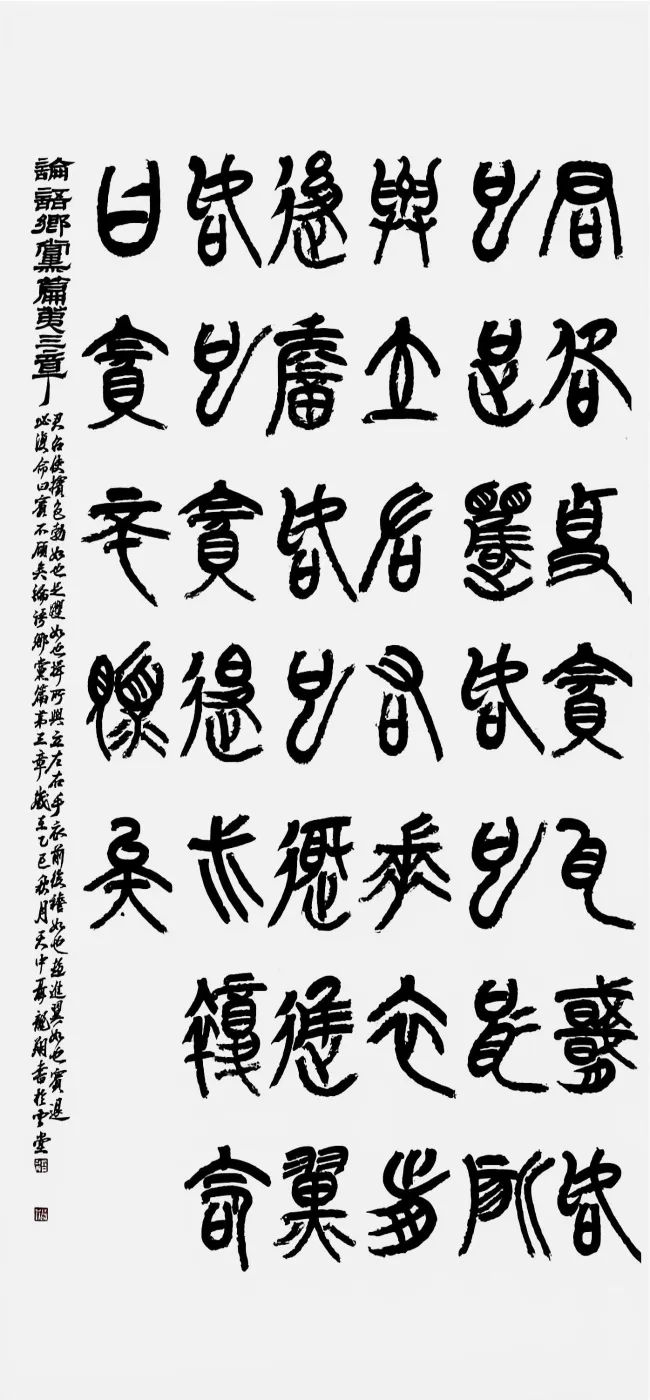 君召使賓色勃如
也足躩如也揖所
與立左右手衣前
後襜如也趨進翼
如也賓退必復命
曰賓不顧矣
論語鄉黨篇第三章
君召使擯色勃如也足躩如也揖所與立左右手衣前後襜如也趨進翼如也賓退
必復命曰賓不顧矣論語鄉黨篇第三章歲在乙巳秋月天中聶龍翔書於堂